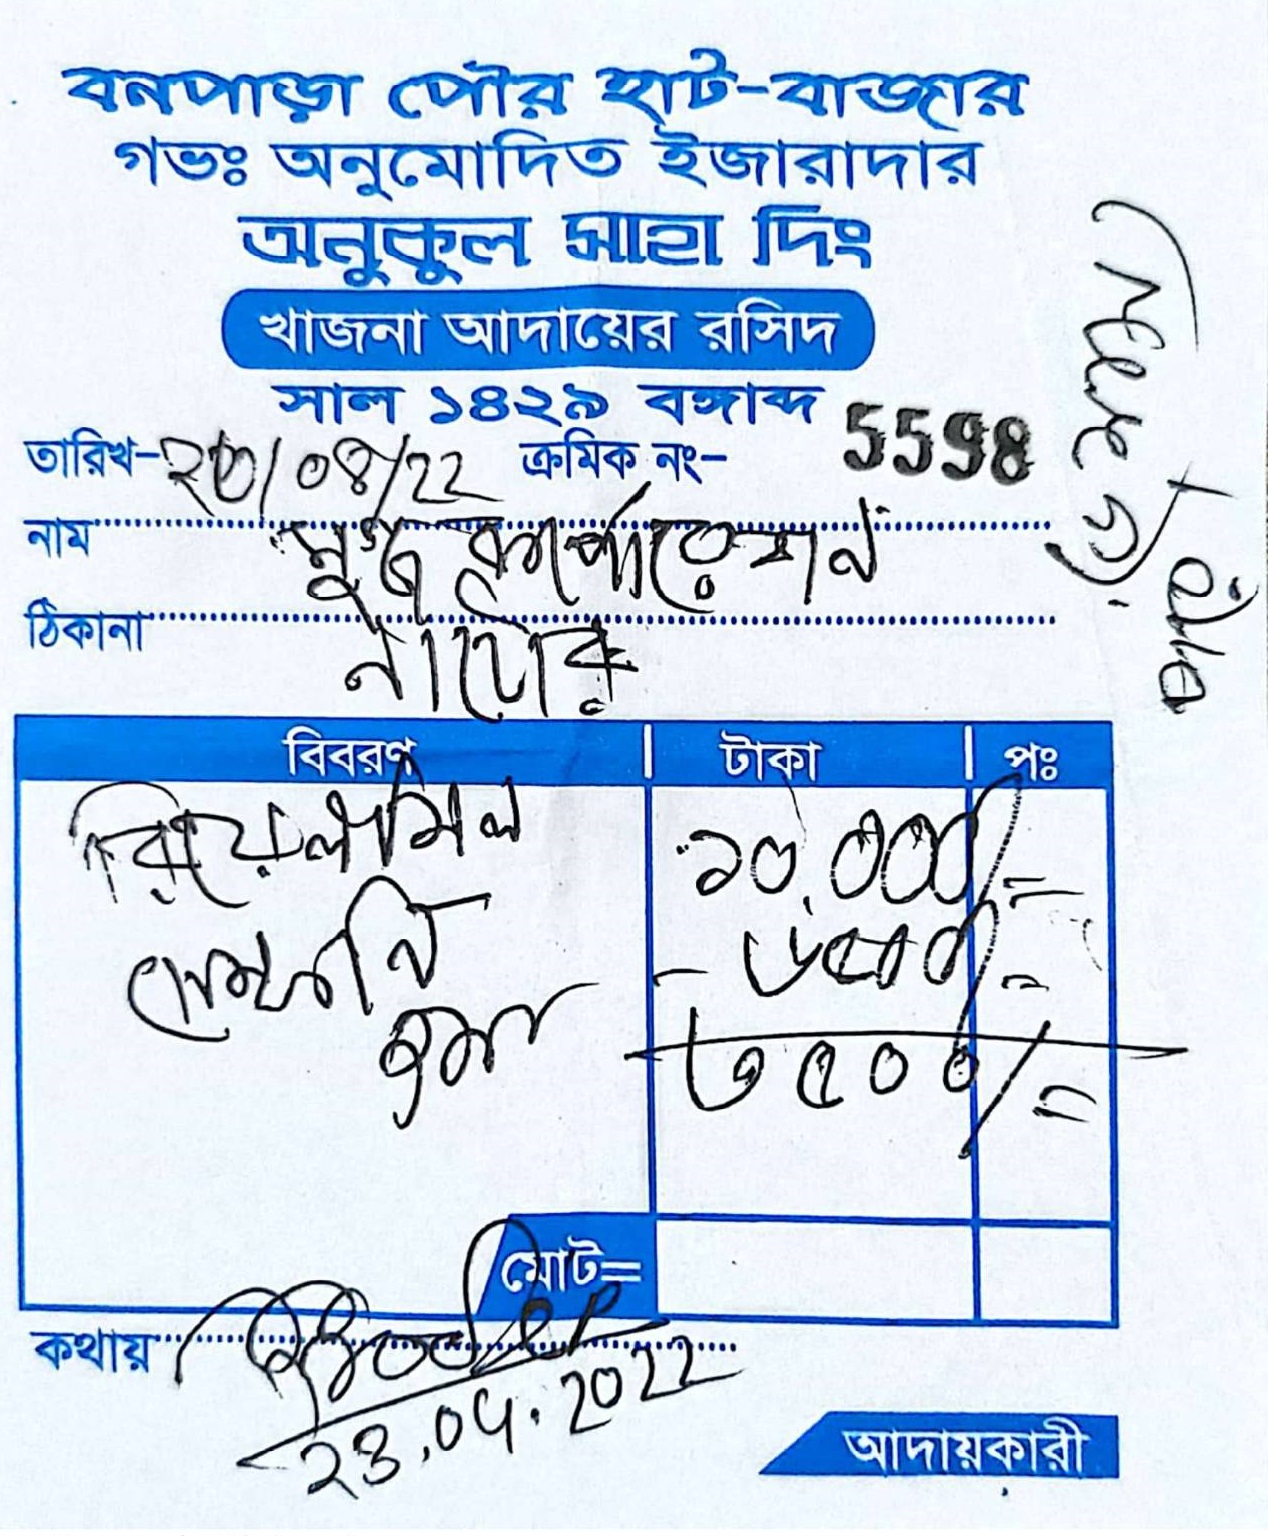 বনপাড়া পৌর হাট-বাজার
গভঃ অনুমোদিত ইজারাদার
অনুকুল সাহা দিং
খাজনা আদায়ের রসিদ
সাল ১৪২৯ বঙ্গাব্দ
তারিখ- ২৩/০৪/২২ ক্রমিক নং- 5598
নাম কর্পোরেশন
ঠিকানা নাটোর
বিবরণ টাকা পঃ
১০,০০০/=
- ৬৫০০/=
৩৫০০/=
মোট=
কথায়
23.04.2022
আদায়কারী